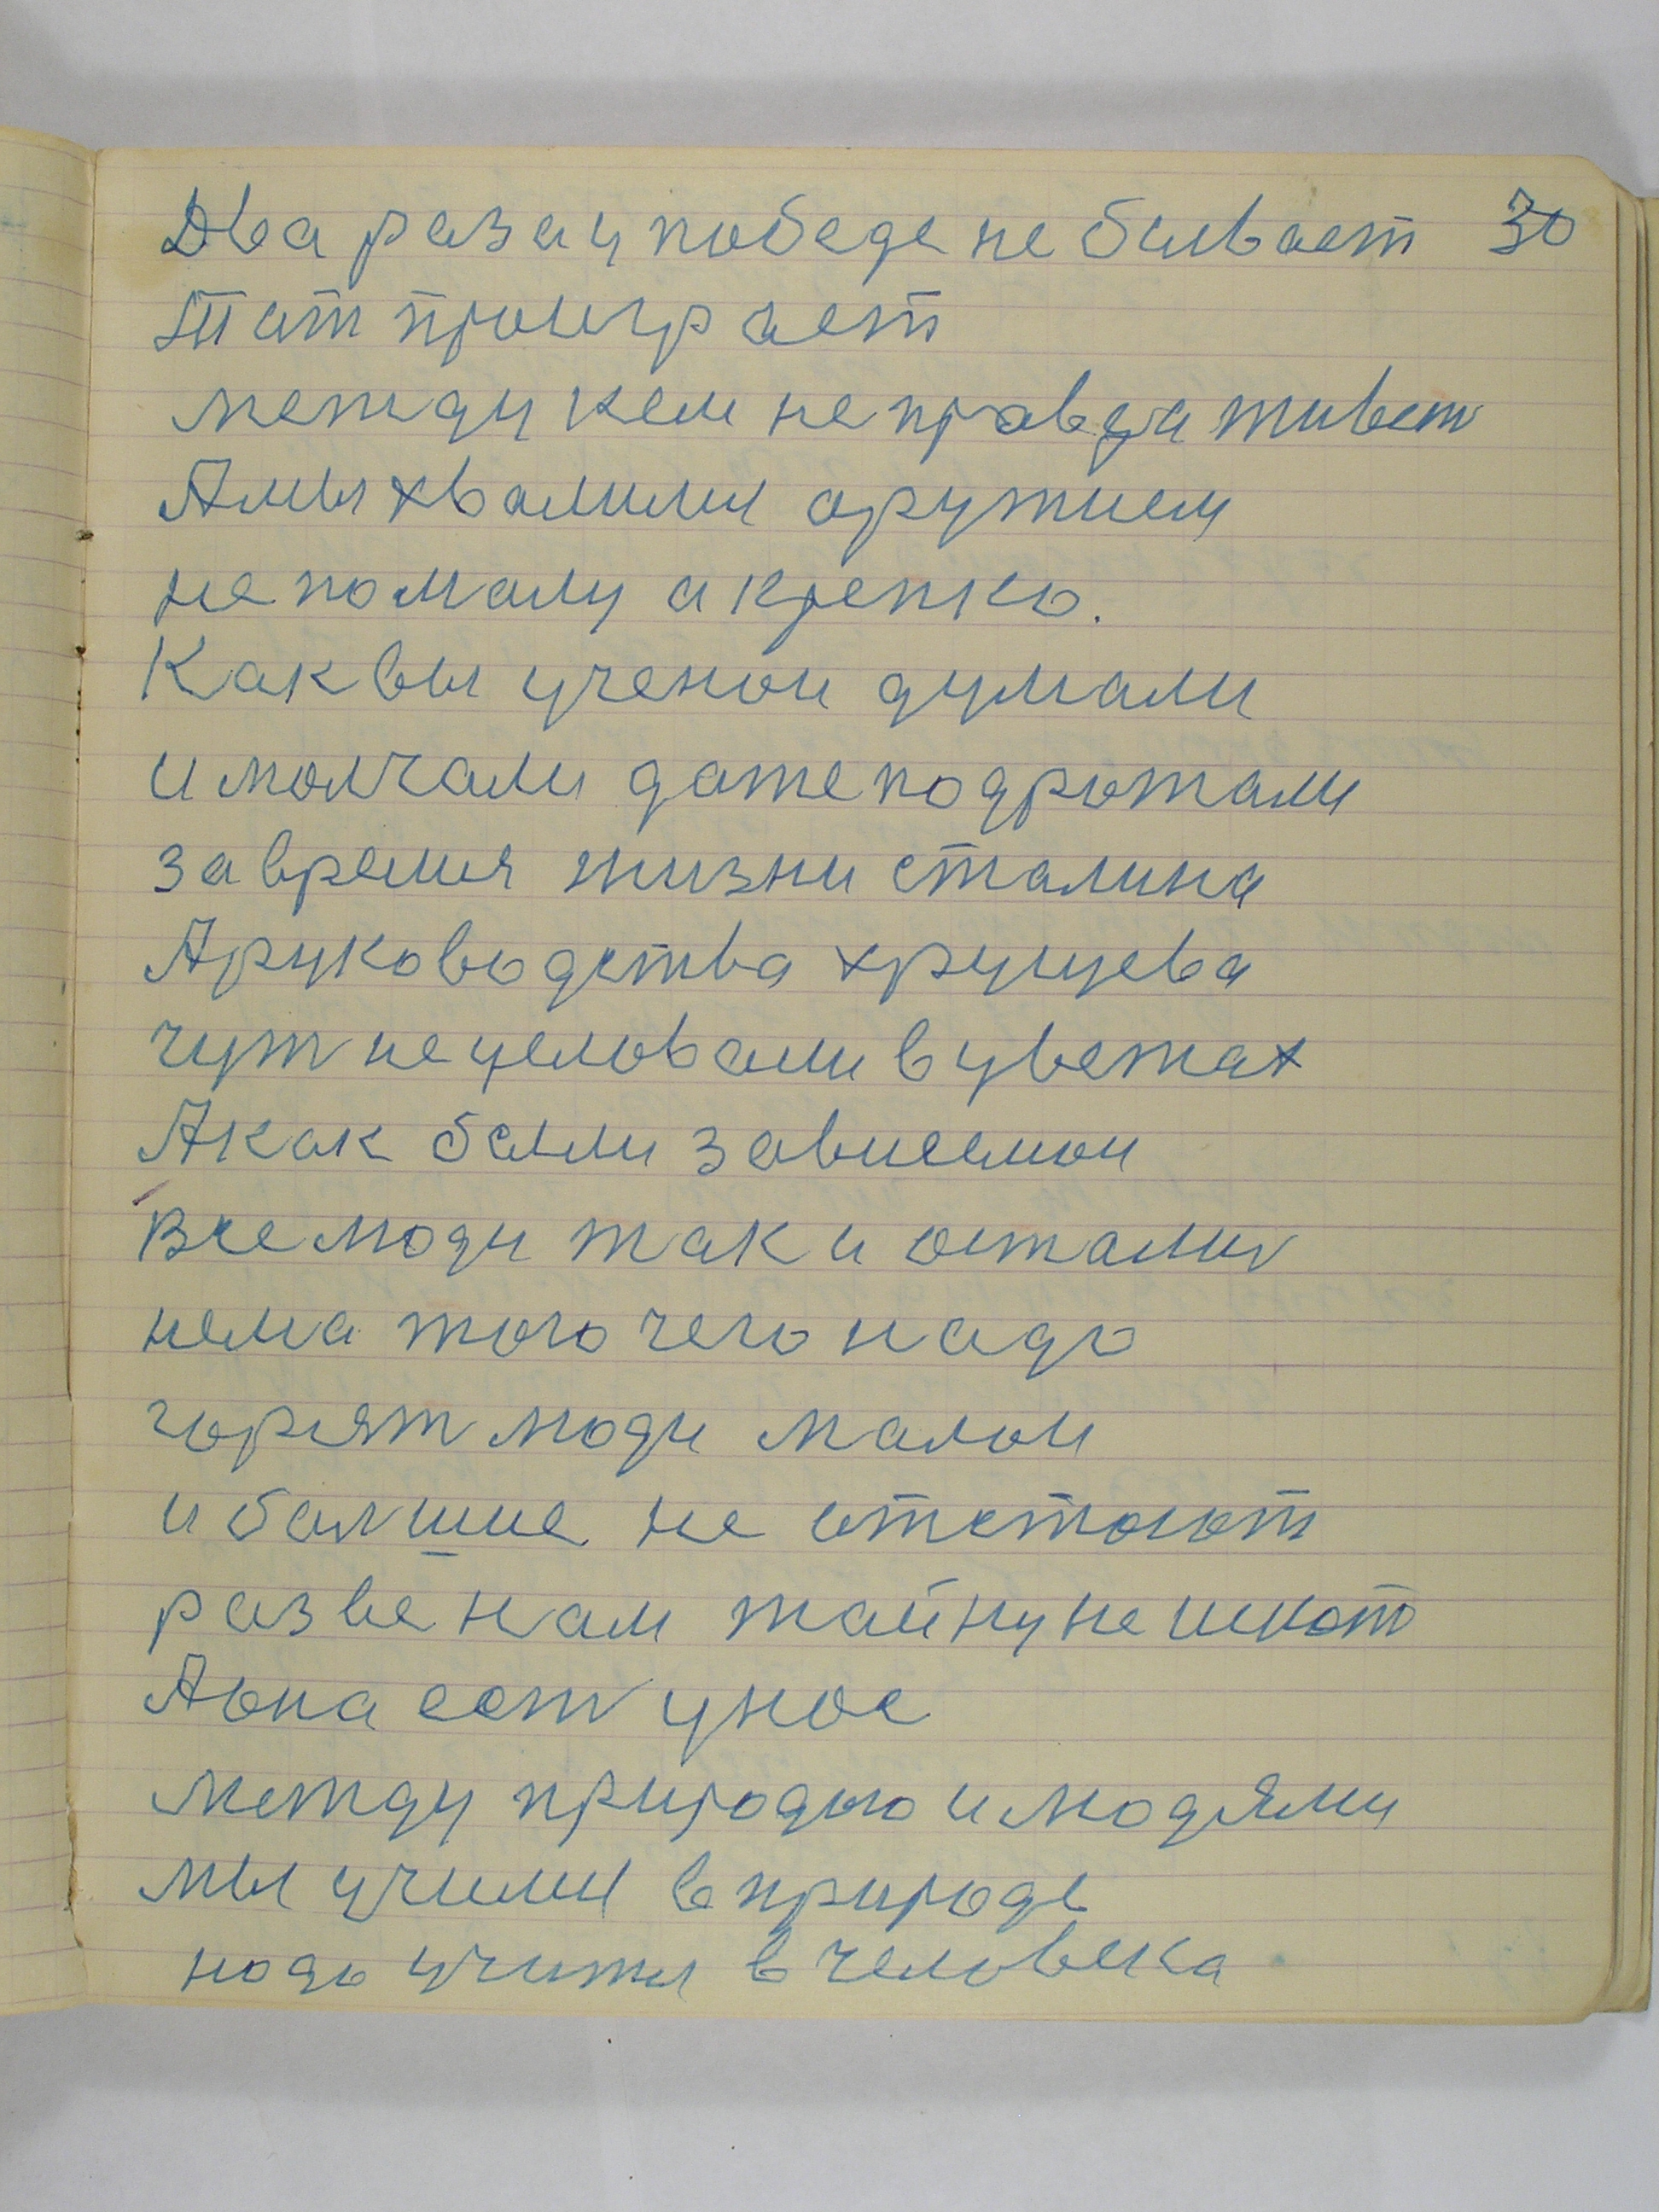 Два раза у победе не бывает 30
Тат проиграет
между кем не правда живет
А мы хвалимся аружием
не помалу а крепко.
Как вы ученои думали
и молчали даже подрожали
за время жизни сталина
А руководства хрущева
чут не целовали в цветах
А как были зависемои
Все люди так и осталис
нема того чего надо
горят люди малои
и болшие не отстают
разве нам тайну не ищют
А она ест у нас
между природою и людями
мы училис в природе
надо учится в человека